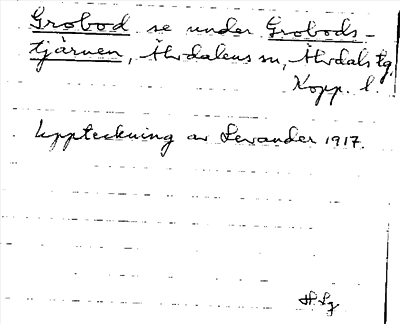 Grobod se under Grobods-
tjärnen, Älvdalens sn, Älvdals tg,
Kopp. l.
Uppteckning av Levander 1917.